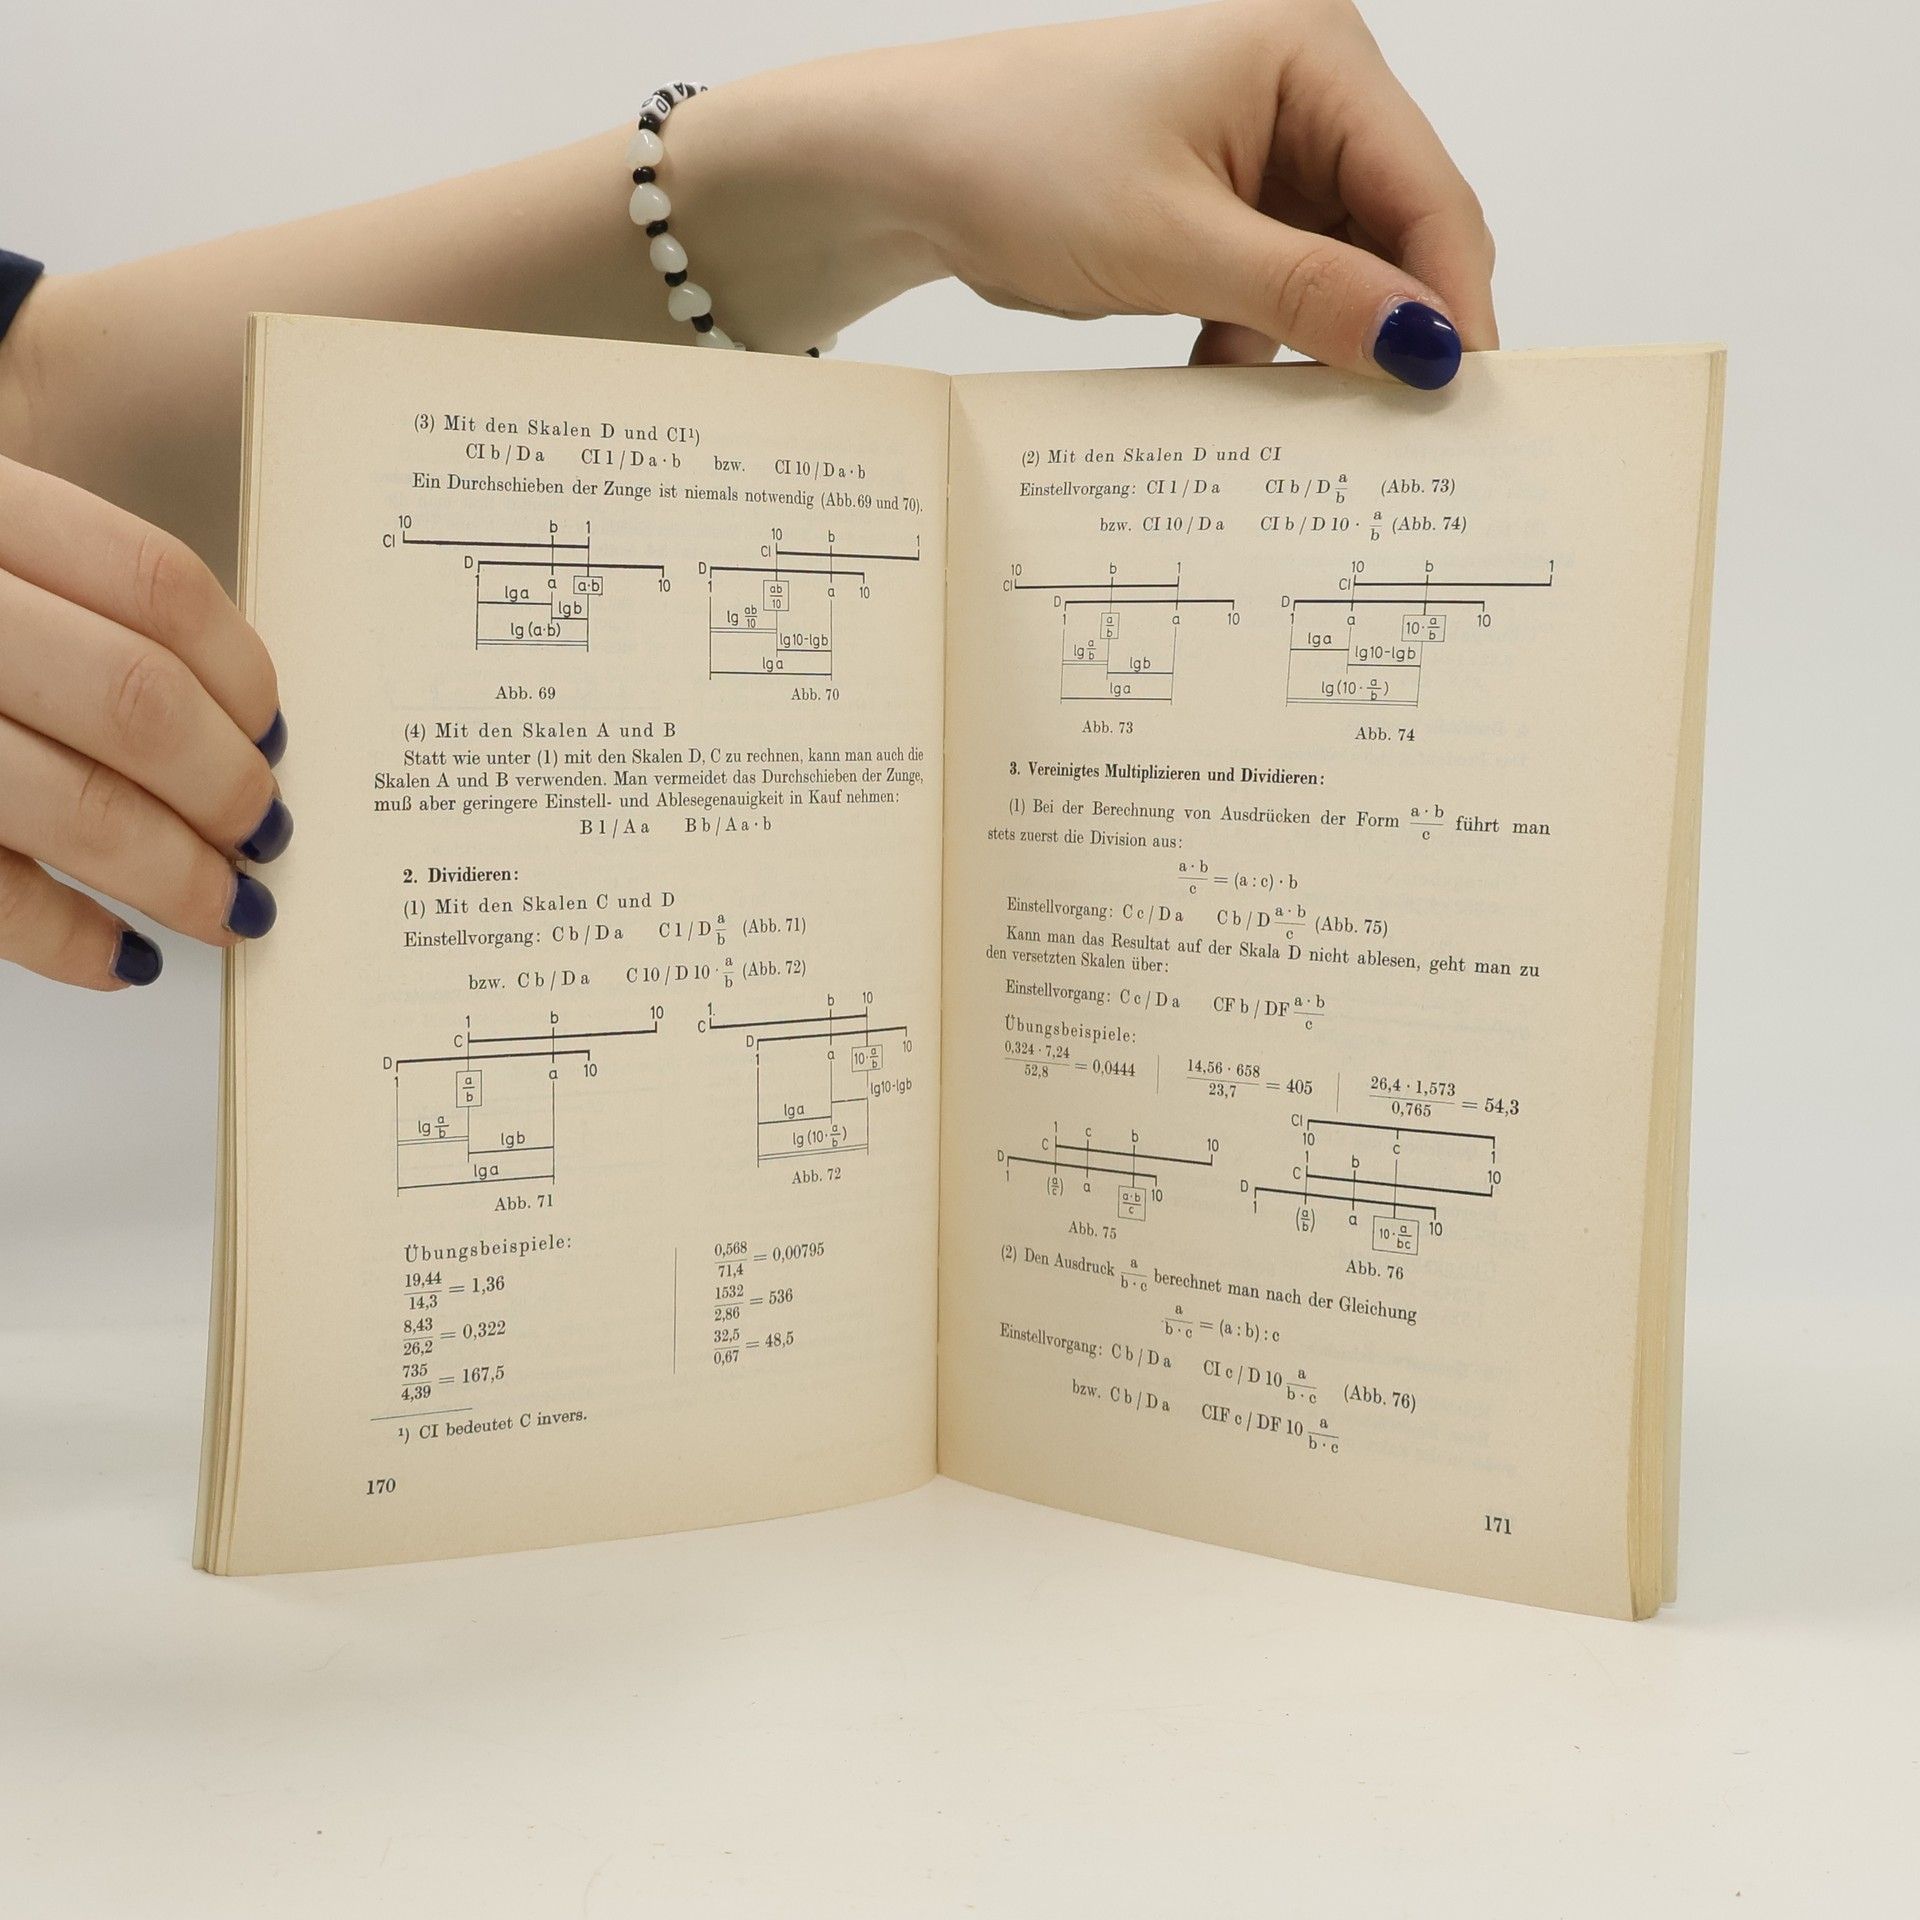 (3) Mit den Skalen D und CI¹)
CI b / D a CI 1 / D a · b bzw. CI 10 / D a · b
Ein Durchschieben der Zunge ist niemals notwendig (Abb. 69 und 70).
10 b 1
CI
D
1 a a·b 10
lg a
lg b
lg (a·b)
Abb. 69
10 b 1
CI
D
1 ab/10 a 10
lg ab/10
lg10-lgb
lg a
Abb. 70
(4) Mit den Skalen A und B
Statt wie unter (1) mit den Skalen D, C zu rechnen, kann man auch die
Skalen A und B verwenden. Man vermeidet das Durchschieben der Zunge,
muß aber geringere Einstell- und Ablesegenauigkeit in Kauf nehmen:
B 1 / A a B b / A a · b
2. Dividieren:
(1) Mit den Skalen C und D
Einstellvorgang: C b / D a C 1 / D a/b (Abb. 71)
bzw. C b / D a C 10 / D 10 · a/b (Abb. 72)
1 b 10
C
D
1 a/b a 10
lg a/b
lg b
lg a
Abb. 71
1 b 10
C
D
1 a 10·a/b 10
lg10-lgb
lg a
lg (10·a/b)
Abb. 72
Übungsbeispiele:
19,44/14,3 = 1,36
8,43/26,2 = 0,322
735/4,39 = 167,5
0,568/71,4 = 0,00795
1532/2,86 = 536
32,5/0,67 = 48,5
¹) CI bedeutet C invers.
170
(2) Mit den Skalen D und CI
Einstellvorgang: CI 1 / D a CI b / D a/b (Abb. 73)
bzw. CI 10 / D a CI b / D 10 · a/b (Abb. 74)
10 b 1
CI
D
1 a/b a 10
lg a/b
lg b
lg a
Abb. 73
10 b 1
CI
D
1 a 10·a/b 10
lg a
lg10-lgb
lg (10·a/b)
Abb. 74
3. Vereinigtes Multiplizieren und Dividieren:
(1) Bei der Berechnung von Ausdrücken der Form a · b/c führt man
stets zuerst die Division aus:
a · b/c = (a : c) · b
Einstellvorgang: C c / D a C b / D a · b/c (Abb. 75)
Kann man das Resultat auf der Skala D nicht ablesen, geht man zu
den versetzten Skalen über:
Einstellvorgang: C c / D a CF b / DF a · b/c
Übungsbeispiele:
0,324 · 7,24/52,8 = 0,0444
14,56 · 658/23,7 = 405
26,4 · 1,573/0,765 = 54,3
1 c b 10
C
D
1 (a/c) a a·b/c 10
Abb. 75
CI
10 c 1
1 b 10
C
D
1 (a/b) a 10·a/bc 10
Abb. 76
(2) Den Ausdruck a/b · c berechnet man nach der Gleichung
a/b · c = (a : b) : c
Einstellvorgang: C b / D a CI c / D 10 a/b · c (Abb. 76)
bzw. C b / D a CIF c / DF 10 a/b · c
171